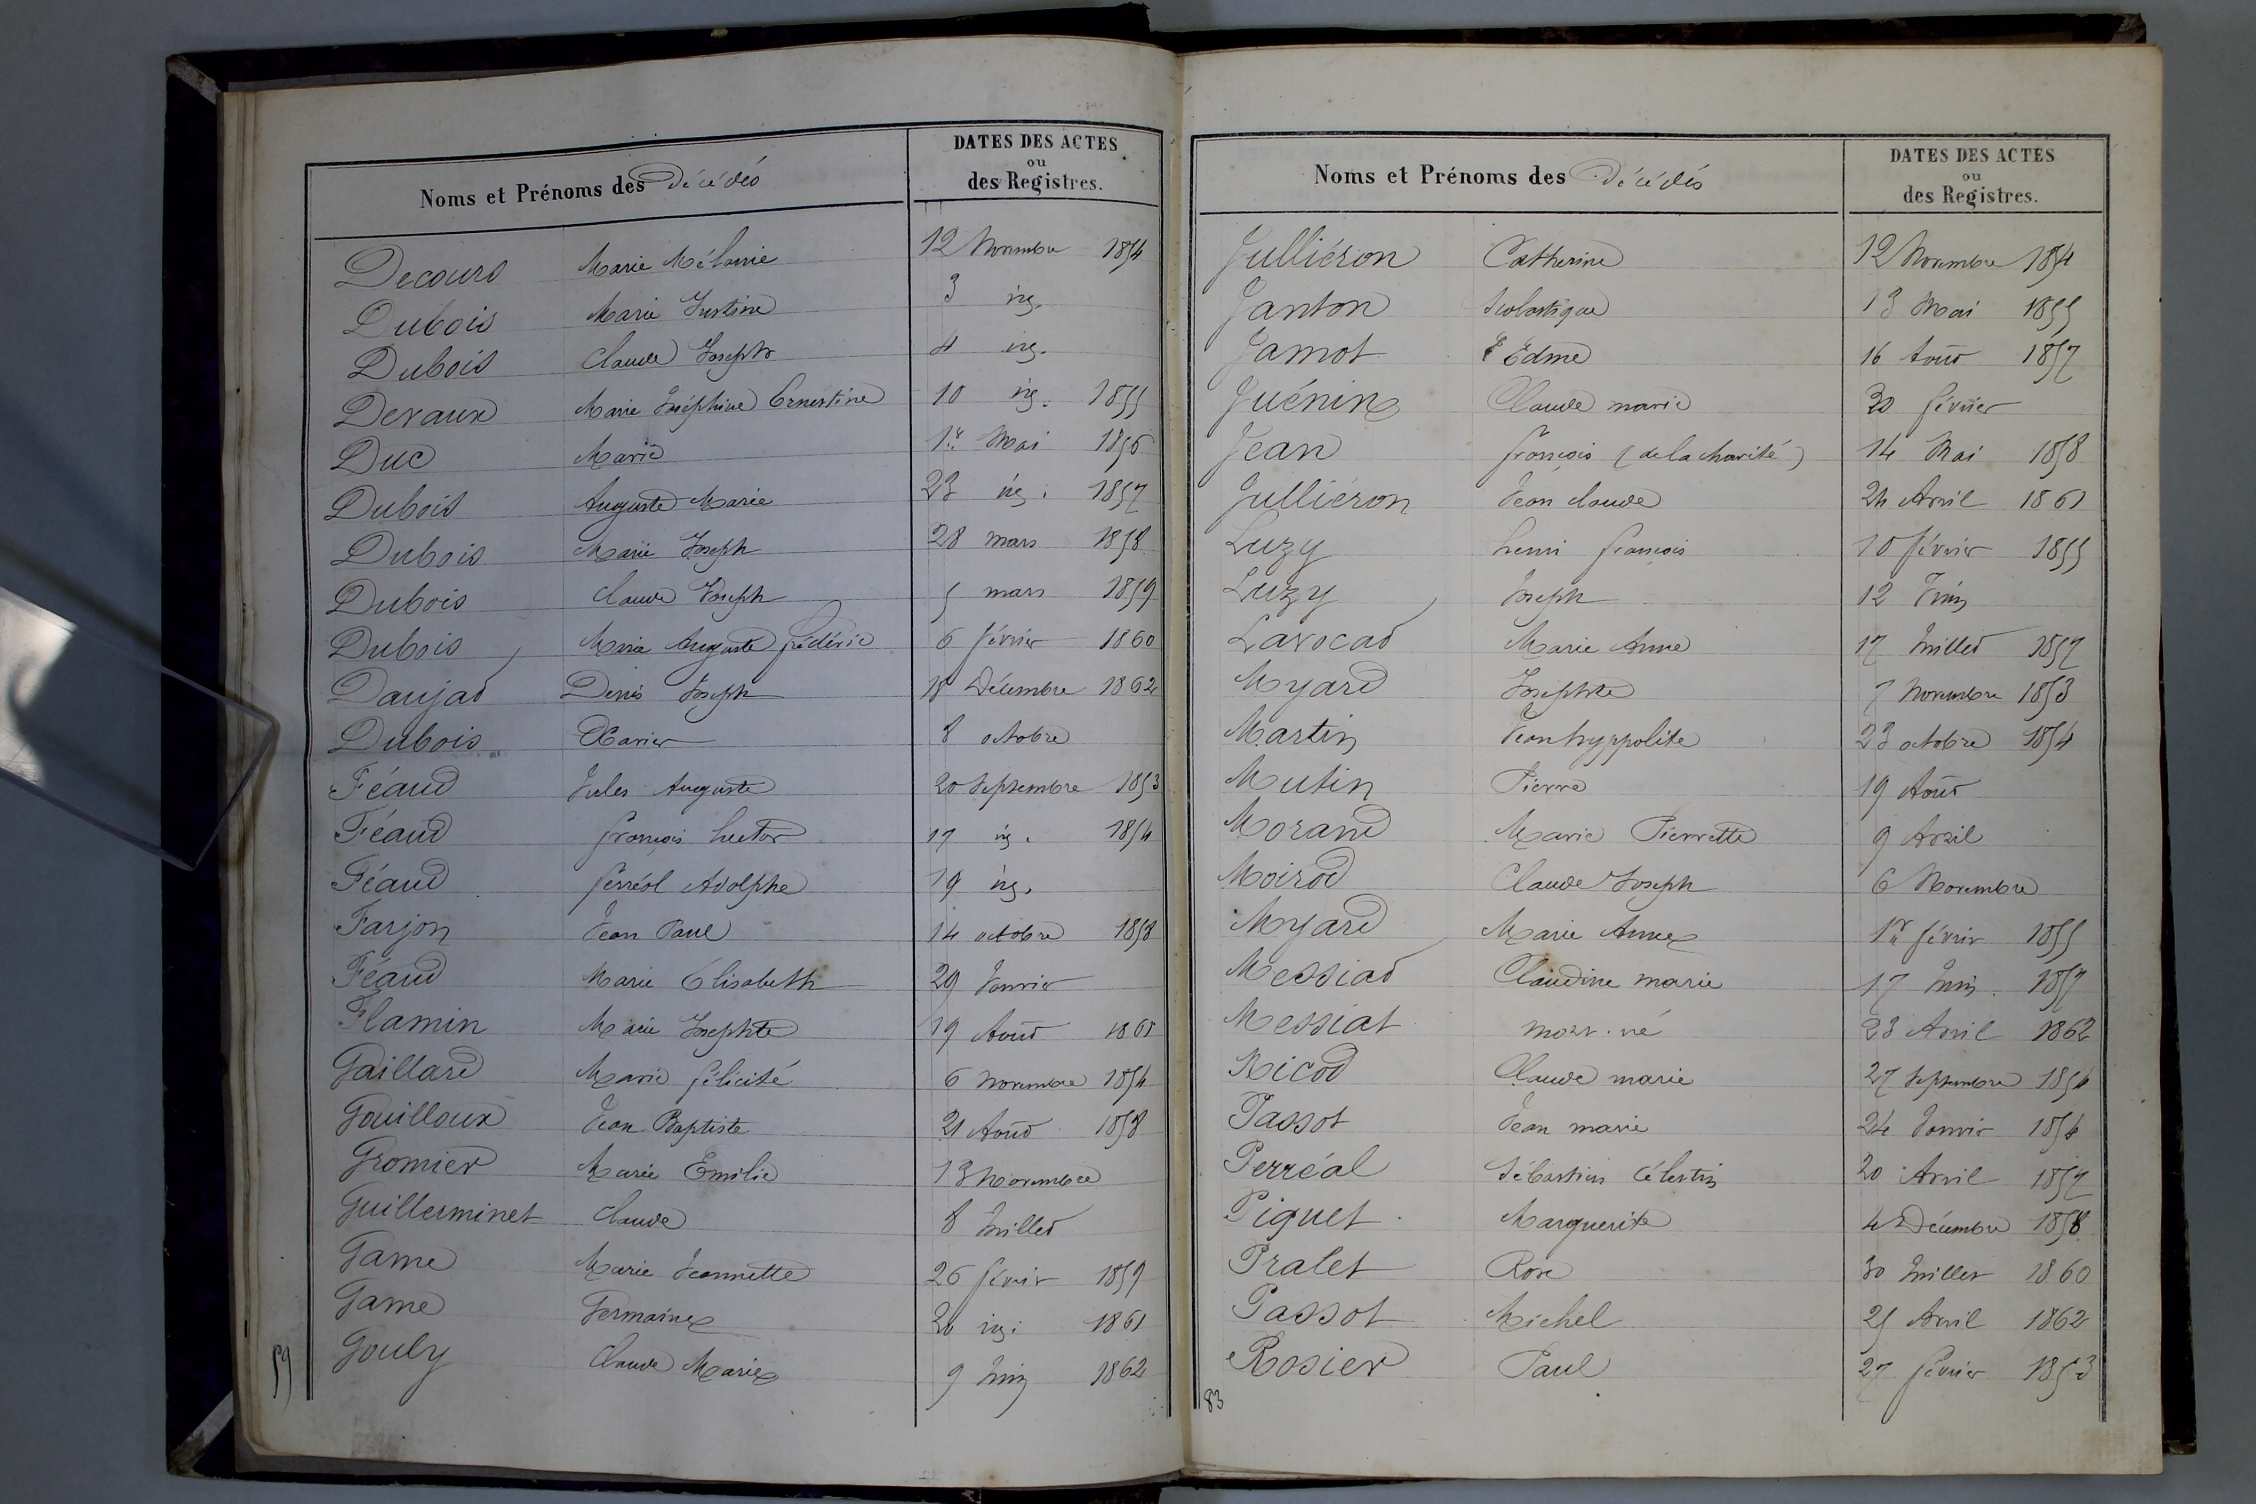 Noms et Prénoms des Décédés DATES DES ACTES
ou
des Registres.
Decours Marie Mélanie 12 Novembre 1854
Dubois Marie Justine 3 id.
Dubois Claude Joseph 4 id.
Devaux Marie Joséphine Ernestine 10 id. 1855
Duc Marie 1er Mai 1856
Dubois Auguste Marie 23 id. 1857
Dubois Marie Joseph 28 mars 1858
Dubois Claude Joseph 5 mars 1859
Dubois Marie Auguste frédéric 6 février 1860
Daujat Denis Joseph 18 Décembre 1862
Dubois Xavier 8 octobre
Féaud Jules Auguste 20 Septembre 1853
Féaud françois hector 17 id. 1854
Féaud ferréol Adolphe 19 id.
Farjon Jean Paul 14 octobre 1858
Féaud Marie Elisabeth 29 Janvier
Flamin Marie Josephte 19 Août 1861
Gaillard Marie félicité 6 novembre 1854
Gouilloux Jean Baptiste 21 Août 1858
Gromier Marie Emilie 13 Novembre
Guillerminet Claude 8 Juillet
Game Marie Jeannette 26 févrir 1859
Game Germaine 20 id. 1861
Gouly Claude Marie 9 Juin 1862
59
Noms et Prénoms des Décédés DATES DES ACTES
ou
des Registres.
Julliéron Catherine 12 Novembre 1854
Janton Scolastique 13 Mai 1855
Jamot Edme 16 Août 1857
Juénin Claude marie 20 février
Jean françois (de la charité) 14 Mai 1858
Julliéron Jean claude 24 Avril 1861
Luzy henri françois 10 février 1855
Luzy Joseph 12 Juin
Lavocat Marie Anne 17 Juillet 1857
Myard Josephte 7 Novembre 1853
Martin Jean hyppolite 23 octobre 1854
Mutin Pierre 19 Août
Morand Marie Pierrette 9 Avril
Moirod Claude Joseph 6 Novembre
Myard Marie Anne 1er févrir 1855
Messiat Claudine marie 17 Juin 1857
Messiat mort-né 23 Avril 1862
Nicod Claude marie 27 Septembre 1854
Passot Jean marie 24 Janvir 1854
Perréal Sébastien Célestin 20 Avril 1857
Piquet Marguerite 4 Décembre 1858
Pralet Rose 30 Juillet 1860
Passot Michel 25 Avril 1862
Rosier Paul 27 février 1853
83